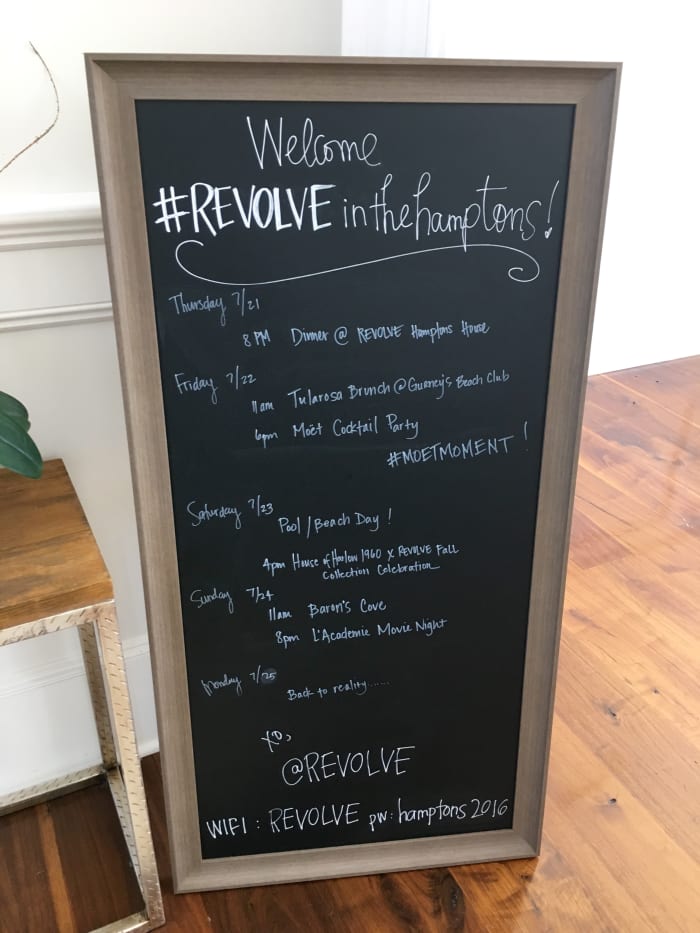 Welcome
#REVOLVE in the hamptons!
Thursday 7/21
8 PM Dinner @ REVOLVE Hamptons House
Friday 7/22
11am Tularosa Brunch @ Gurney's Beach Club
6pm Moët Cocktail Party
#MOETMOMENT!
Saturday 7/23
Pool/Beach Day!
4pm House of Harlow 1960 x REVOLVE Fall
Collection Celebration
Sunday 7/24
11am Baron's Cove
8pm L'Academie Movie Night
Monday 7/25
Back to reality......
xo,
@REVOLVE
WIFI: REVOLVE pw: hamptons 2016